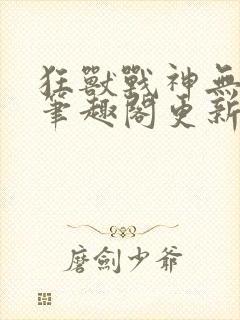 狂獸戰神無
筆趣閣更新
磨劍少爺